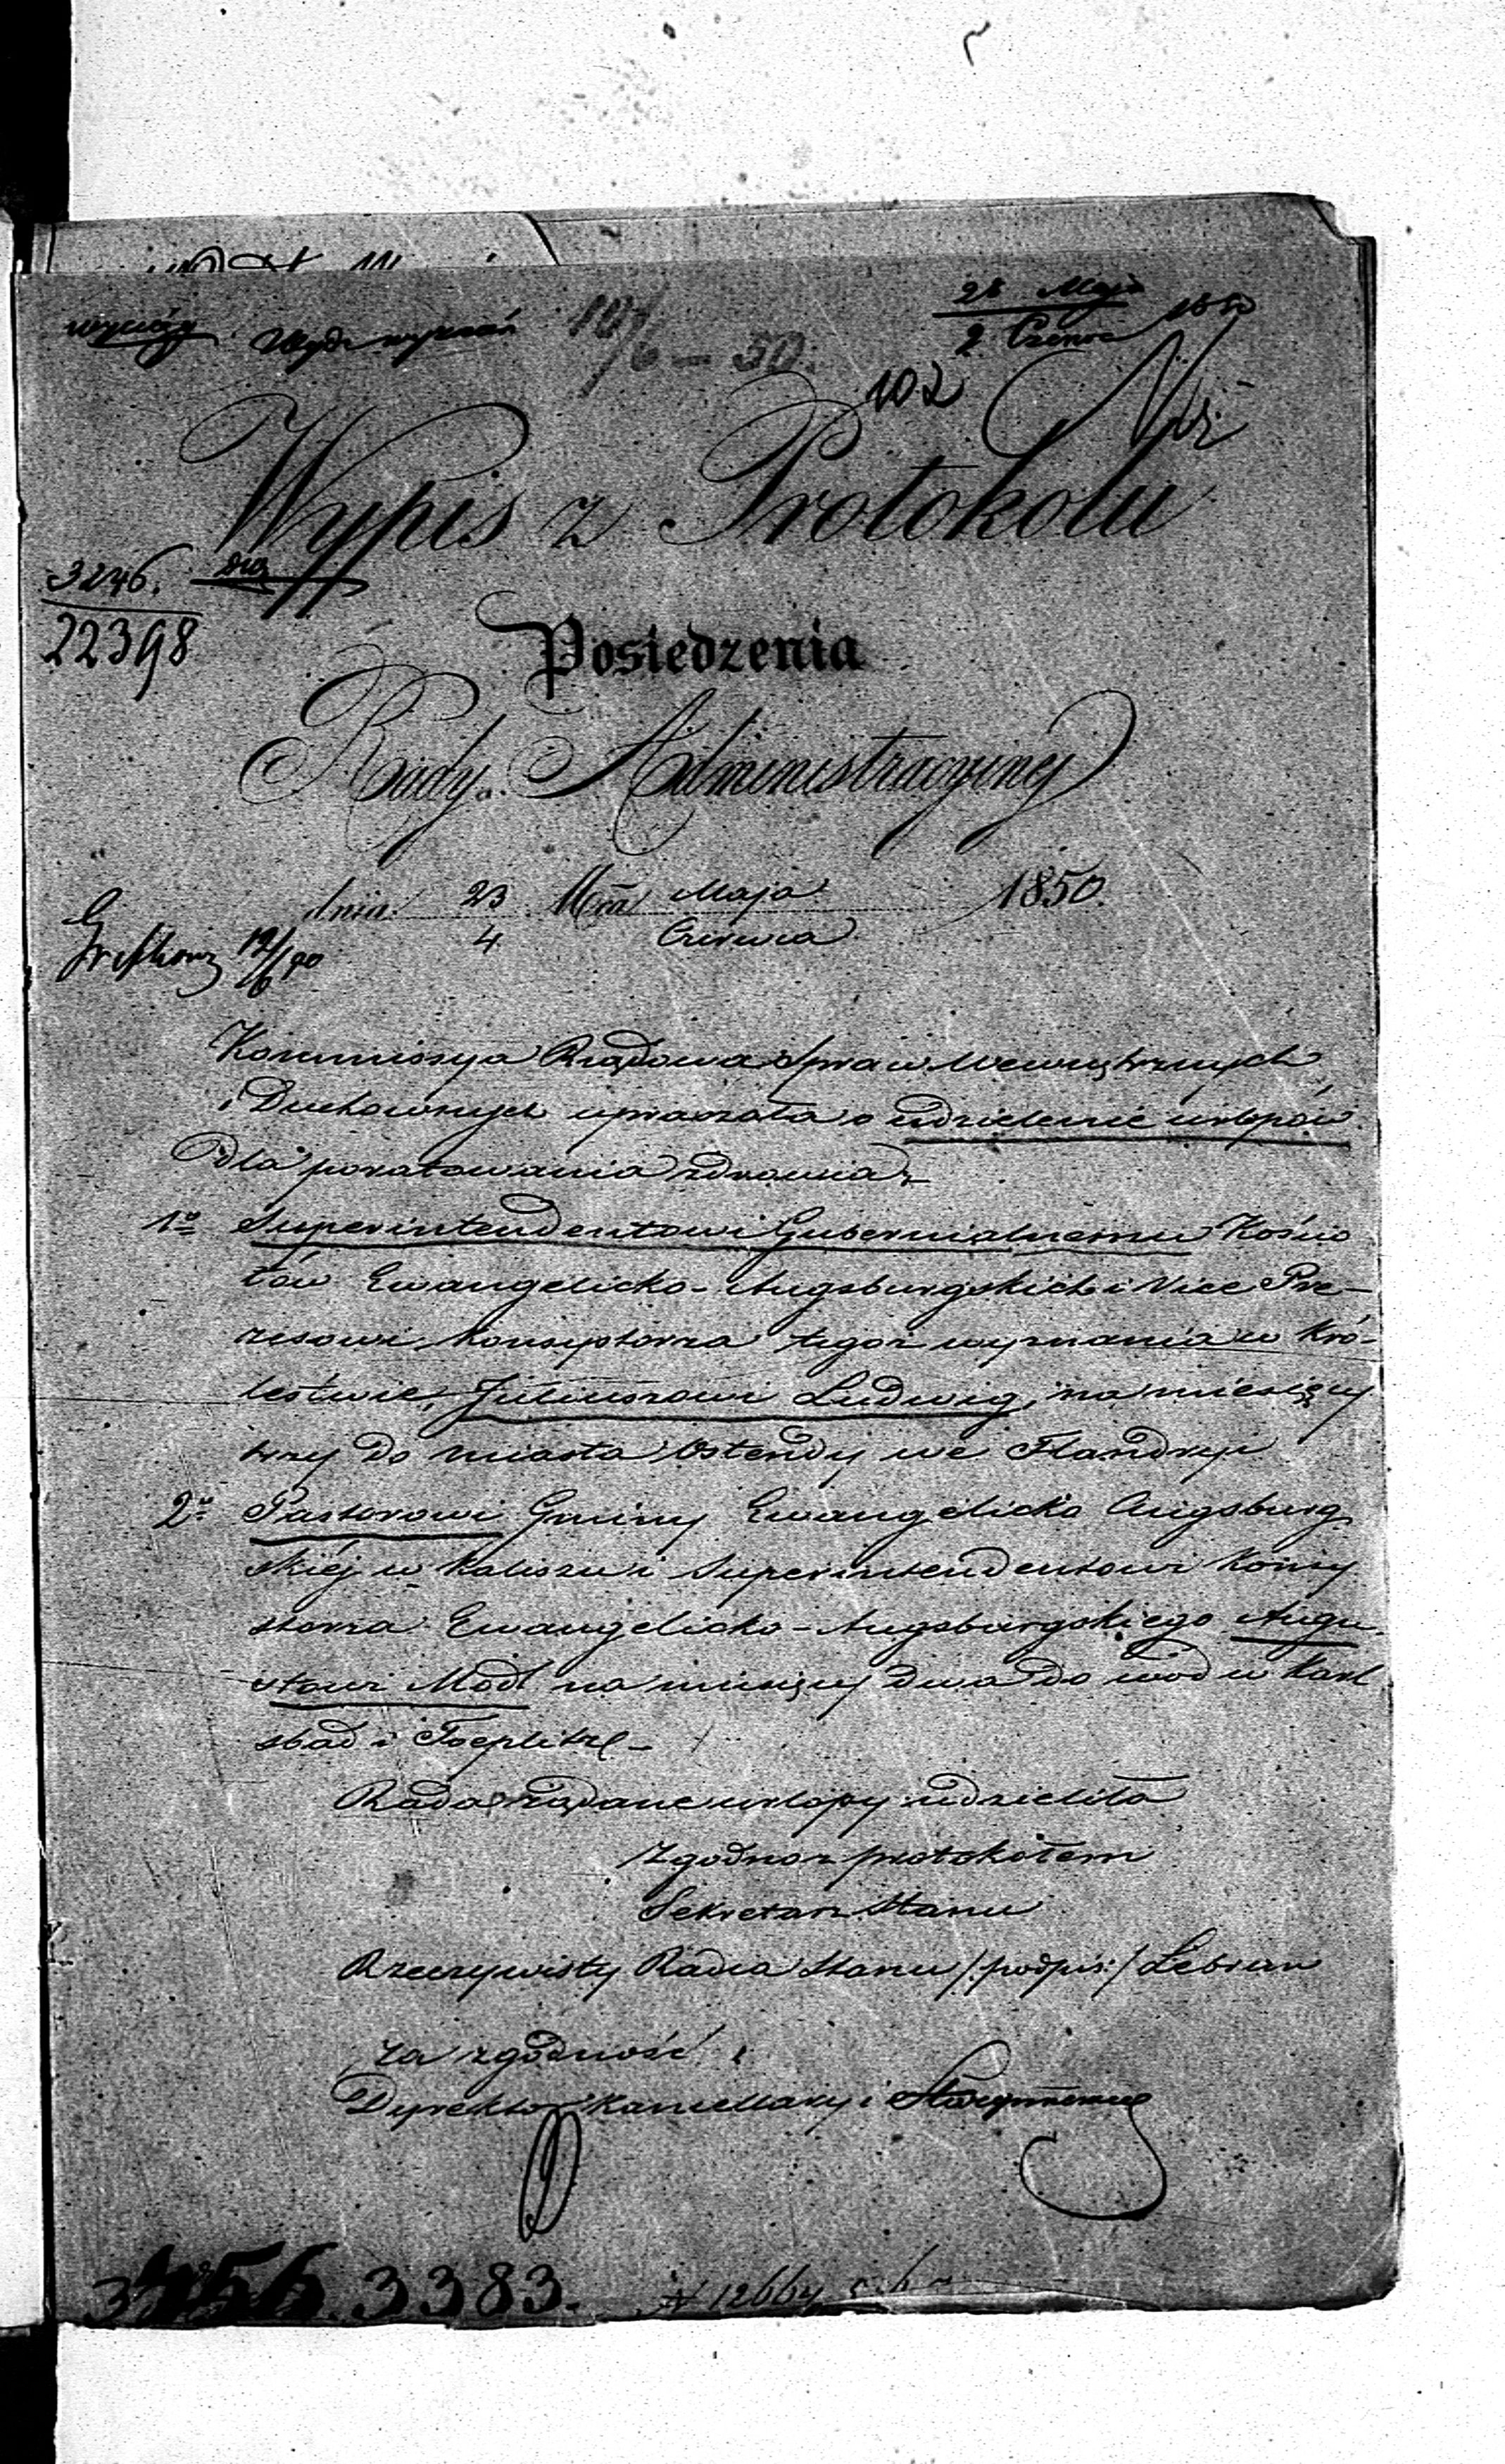 28 Maja 1850
2 Czerwca
102
Wypis z Protokołu
3246.
22398
Posiedzenia
Rady Administracyjnej
dnia 23 Mca Maja 1850.
4 Czerwca
12/6 50
Kommissya Rządowa Spraw Wewnętrznych
i Duchownych upraszała o udzielenie urlopów
dla poratowania zdrowia
1o Superintendentowi Gubernialnemu Kościo
łów Ewangelicko-Augsburgskich i Vice Pre-
zesowi Konsystorza tegoż wyznania w Kró-
lestwie, Juliuszowi Ludwig, na miesięcy
trzy do miasta Ostendy we Flandryi
2o Pastorowi Gminy Ewangelicko Augsburg
skiéj w Kaliszu i Superintendentowi Konsy
storza Ewangelicko-Augsburgskiego Augu-
stowi Modl na miesięcy dwa do wód w Karl
sbad i Toeplitz
Rada żądane urlopy udzieliła
Zgodno z protokołem
Sekretarz Stanu
Rzeczywisty Radca Stanu /podpis:/ Lebrun
za zgodność
Dyrektor Kancellaryi
3383.
N 12664